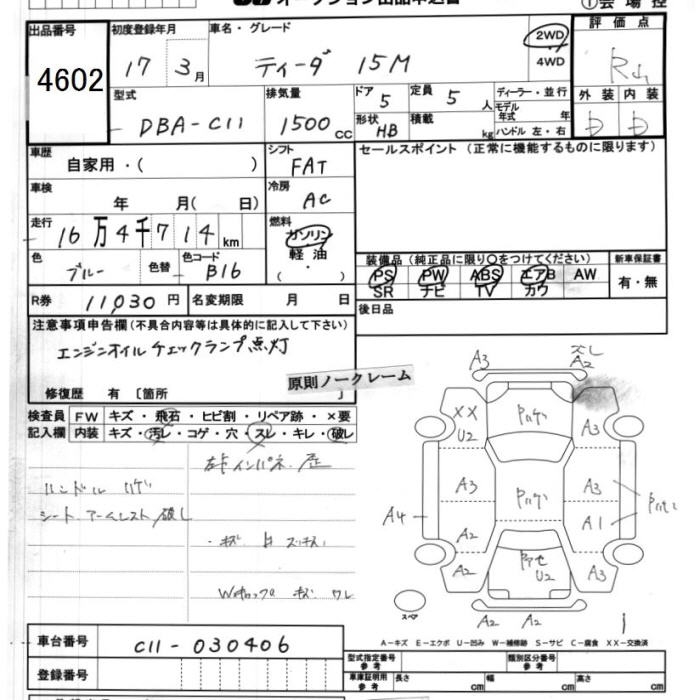 オークション出品申込書
①会場控
出品番号 4602
初度登録年月 17 3月
車名・グレード ティーダ 15M
2WD
4WD
評価点
型式 DBA-C11
排気量 1500cc
ドア 5
形状 HB
定員 5人
積載 kg
ディーラー・並行
モデル年式 年
ハンドル 左・右
外装 内装
D D
車歴 自家用・( )
シフト FAT
セールスポイント(正常に機能するものに限ります)
車検 年 月( 日)
冷房 AC
走行 16万4千714km
燃料 ガソリン
軽油
( ・ )
色 ブルー 色替 色コード B16
装備品(純正品に限り○をつけてください) 新車保証書
PS PW ABS エアB AW 有・無
SR ナビ TV カワ
R券 11,030円 名変期限 月 日
後日品
注意事項申告欄(不具合内容等は具体的に記入して下さい)
エンジンオイルチェックランプ点灯
修復歴 有 [箇所
原則ノークレーム
検査員 FW キズ・飛石・ヒビ割・リペア跡・×要
記入欄 内装 キズ・汚レ・コゲ・穴・スレ・キレ・破レ
ハンドルハゲ
シート アームレスト破レ
A3 A2
XX U2
A3
A3 A3
A4 A2 A1
A2 U2 A3
スペア
A2 A2
A-キズ E-エクボ U-凹み W-補修跡 S-サビ C-腐食 XX-交換済
車台番号 C11-030406
登録番号
型式指定番号 参考 類別区分番号 参考
車庫証明用 参考 長さ cm 幅 cm 高さ cm